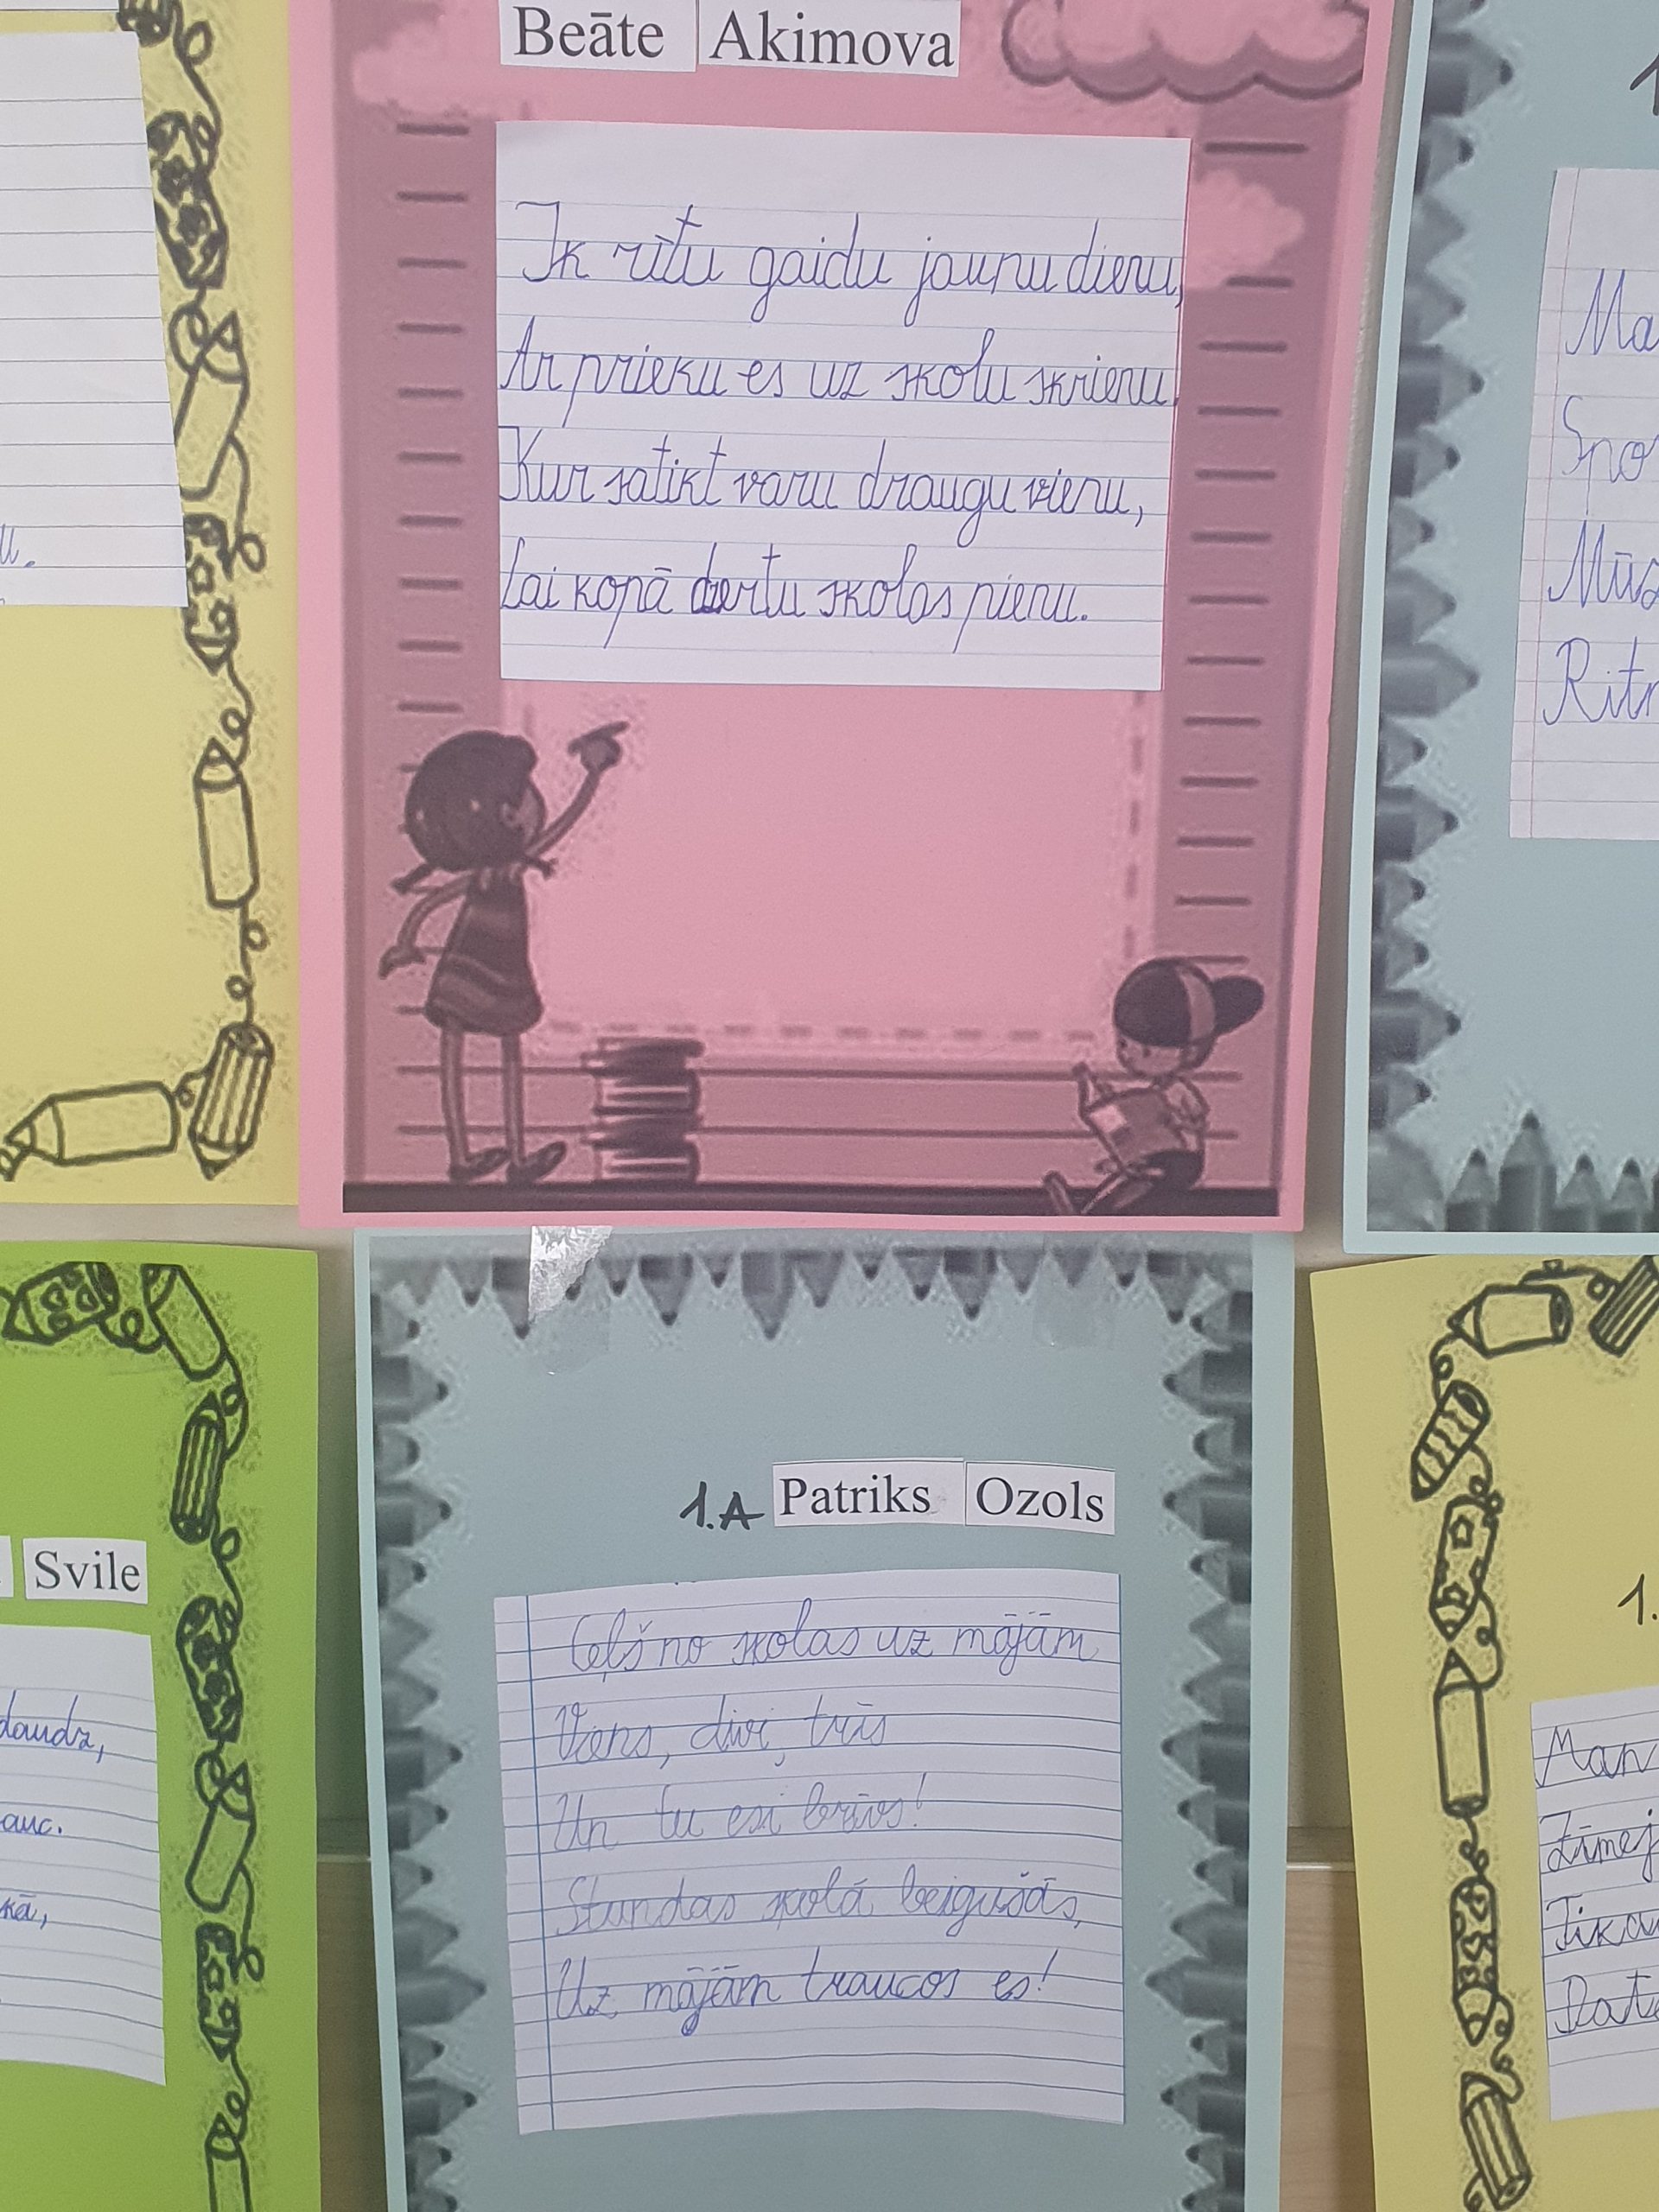 Beāte Akimova
Ik rītu gaidu jaunu dienu,
Ar prieku es uz skolu skrienu,
Kur satikt varu draugu vienu,
Lai kopā dzertu skolas pienu.
u.
1
Ma
Spo
Mūz
Ritm
Svile
daudz,
auc.
kā,
1.A Patriks Ozols
Ceļš no skolas uz mājām
Viens, divi, trīs
Un tu esi brīvs!
Stundas skolā beigušās,
Uz mājām traucos es!
1.
Man
Zīmēj
Tika